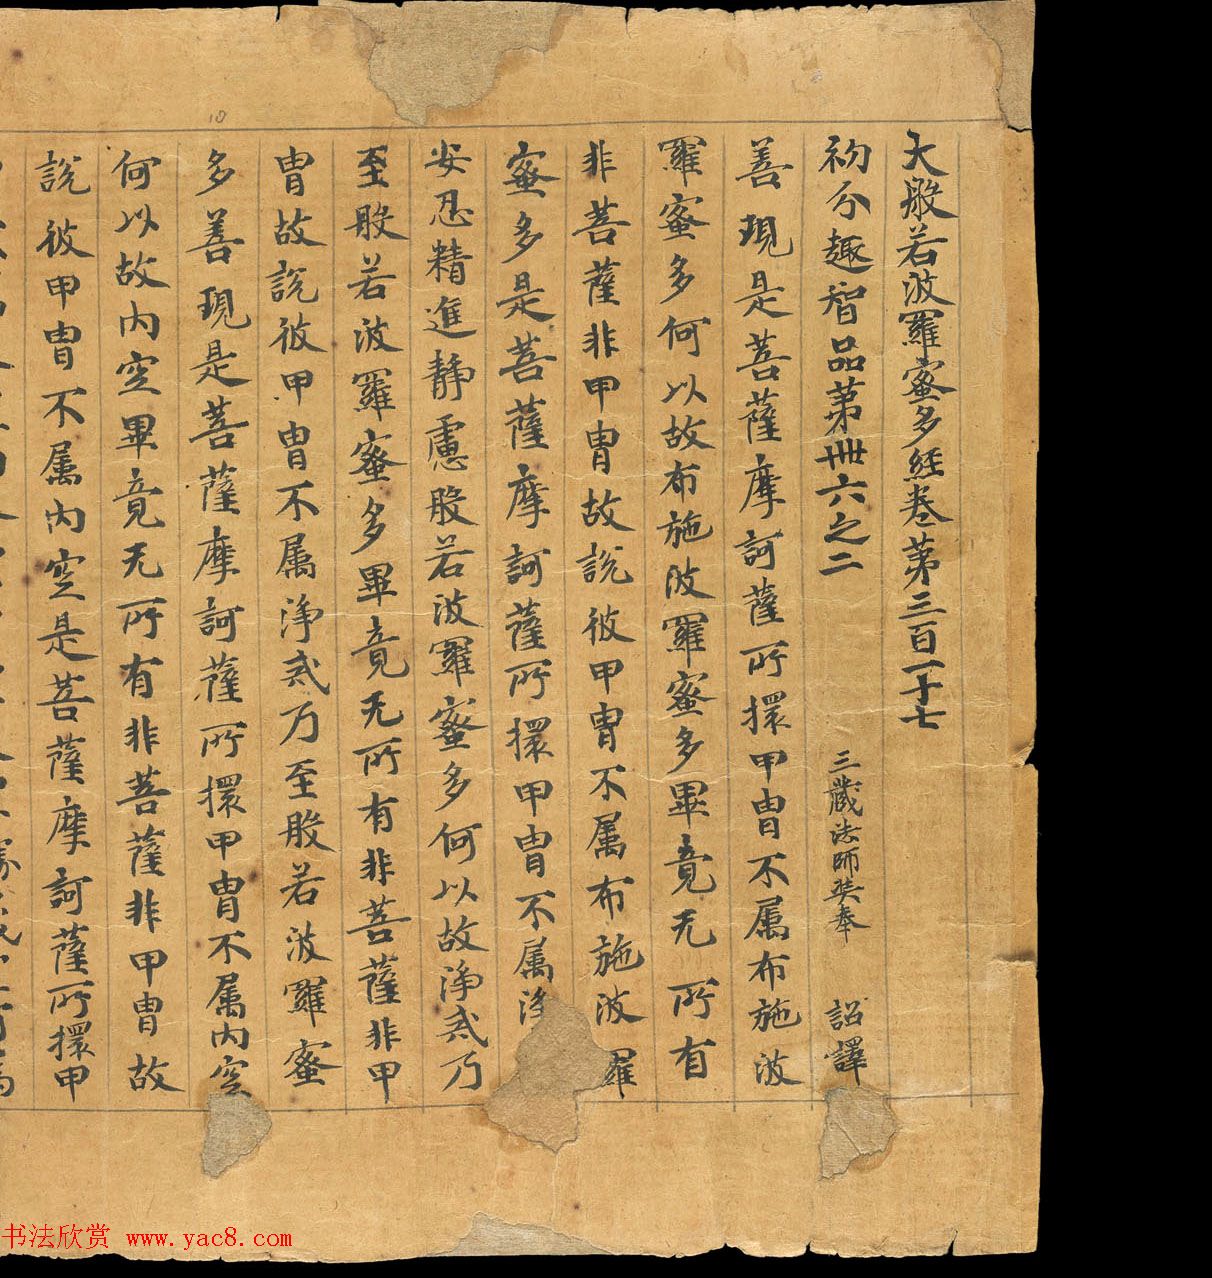 大般若波羅蜜多經卷第三百一十七
初分趣智品第卌六之二 三藏法師奘奉 詔譯
善現是菩薩摩訶薩所擐甲胄不属布施波
羅蜜多何以故布施波羅蜜多畢竟无所有
非菩薩非甲胄故説彼甲胄不属布施波羅
蜜多是菩薩摩訶薩所擐甲胄不属淨
安忍精進静慮般若波羅蜜多何以故淨戒乃
至般若波羅蜜多畢竟无所有非菩薩非甲
胄故説彼甲胄不属淨戒乃至般若波羅蜜
多善現是菩薩摩訶薩所擐甲胄不属内空
何以故内空畢竟无所有非菩薩非甲胄故
説彼甲胄不属内空是菩薩摩訶薩所擐甲
10
书法欣赏 www.yac8.com